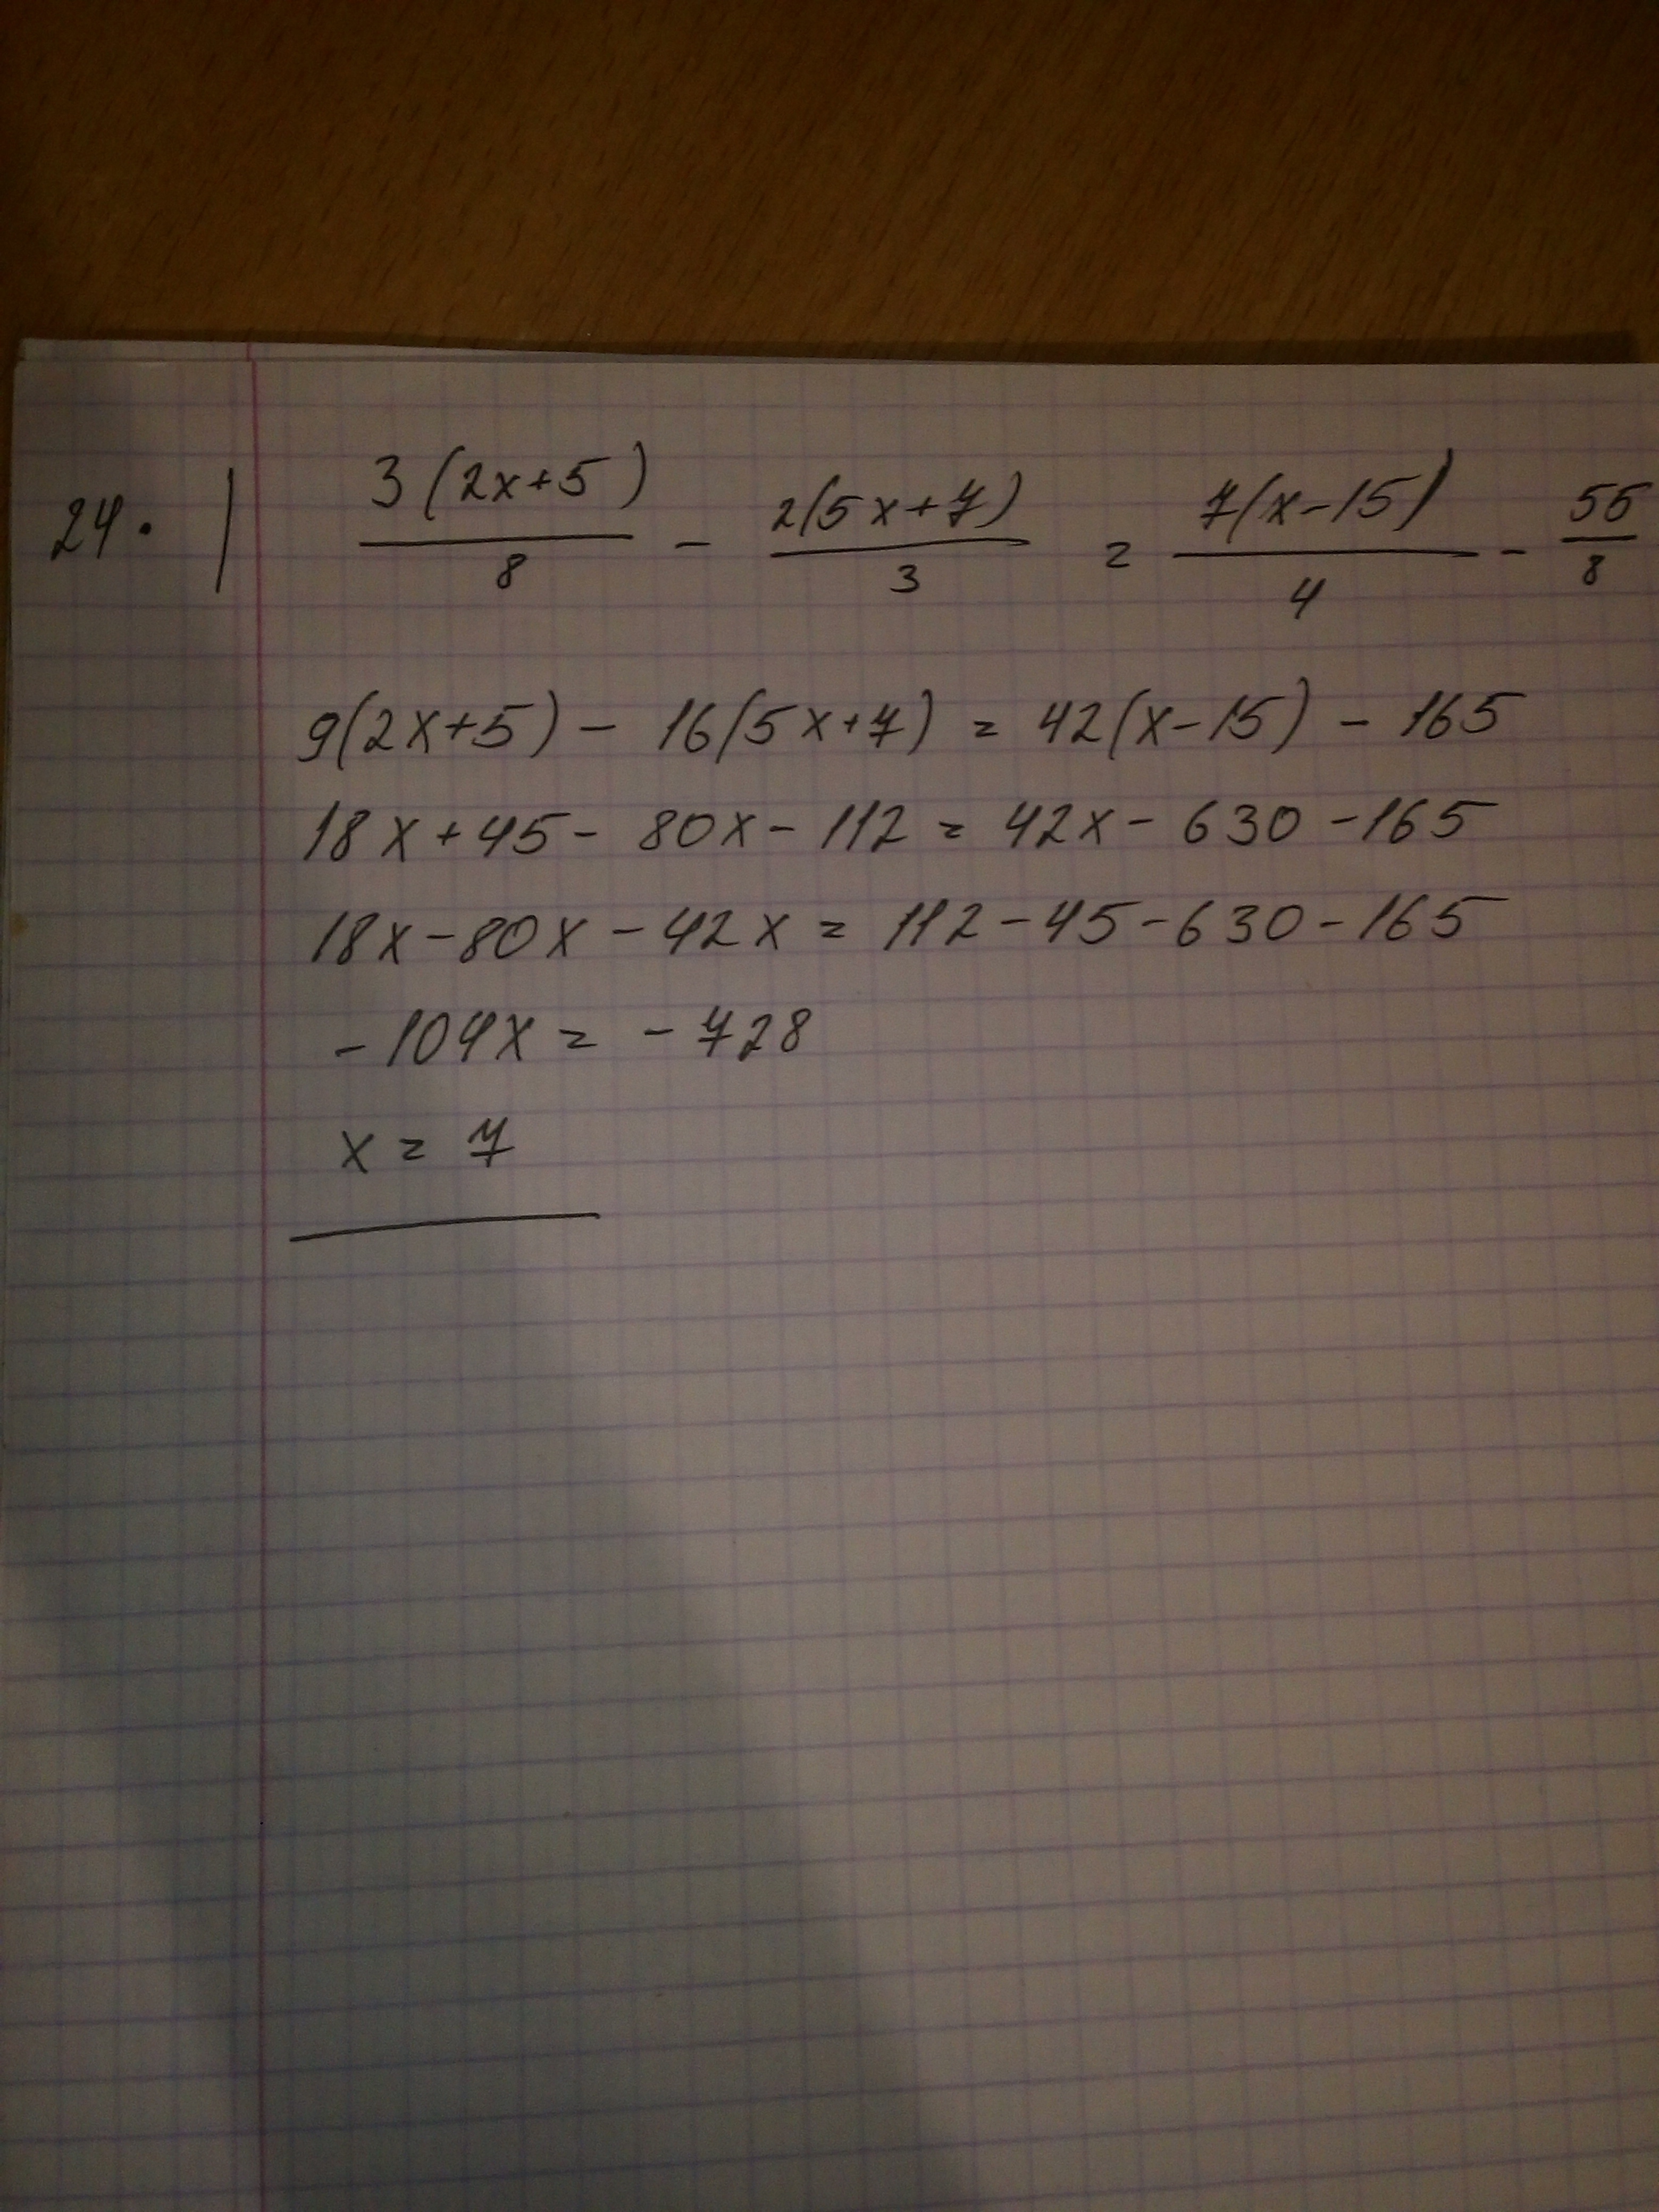 24. | 3(2x+5)/8 - 2(5x+7)/3 = 7(x-15)/4 - 55/8
9(2x+5) - 16(5x+7) = 42(x-15) - 165
18x+45 - 80x - 112 = 42x - 630 - 165
18x - 80x - 42x = 112 - 45 - 630 - 165
-104x = - 728
x = 7